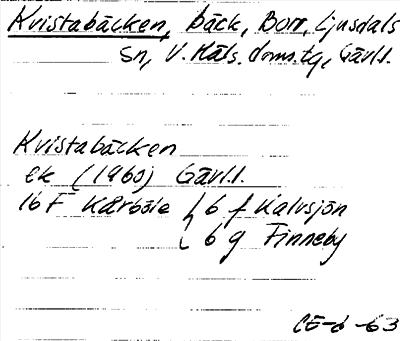 Kvistabäcken, bäck, Borr, Ljusdals
Sn, V. Häls. doms.tg, Gävl.l.
Kvistabäcken
ek (1960) Gävl.l.
16 F Kårböle { 6 f Kalvsjön
6 g Finneby
CE-6-63